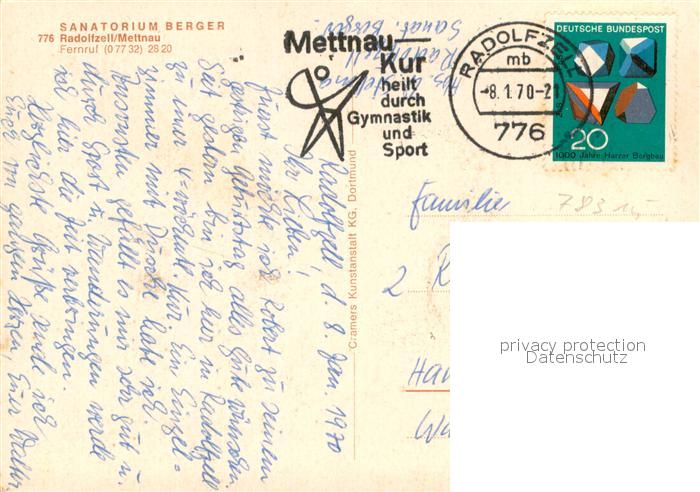 SANATORIUM BERGER
776 Radolfzell/Mettnau
Fernruf (0 77 32) 28 20
Mettnau
Kur
heilt
durch
Gymnastik
und
Sport
RADOLFZELL
mb
-8.1.70-21
776
DEUTSCHE BUNDESPOST
20
1000 Jahre Harzer Bergbau
Cramers Kunstanstalt KG, Dortmund
Radolfzell, d. 8. Jan. 1970
Ihr Lieben!
Zuerst möchte ich Robert zu seinem
Geburtstag alles Gute wünschen.
Seit gestern bin ich hier in Radolfzell
zu einer 4-wöchigen Kur. Ein Einzel=
zimmer mit Dusche habe ich.
Ansonsten gefällt es mir sehr gut u.
durch Sport u. Wanderungen werde
ich hier die Zeit verbringen.
Herzlichste Grüße sendet ich
Euch von ganzem Herzen, Euer
Sanat. Berger
Familie
2
Ha
privacy protection
Datenschutz
783